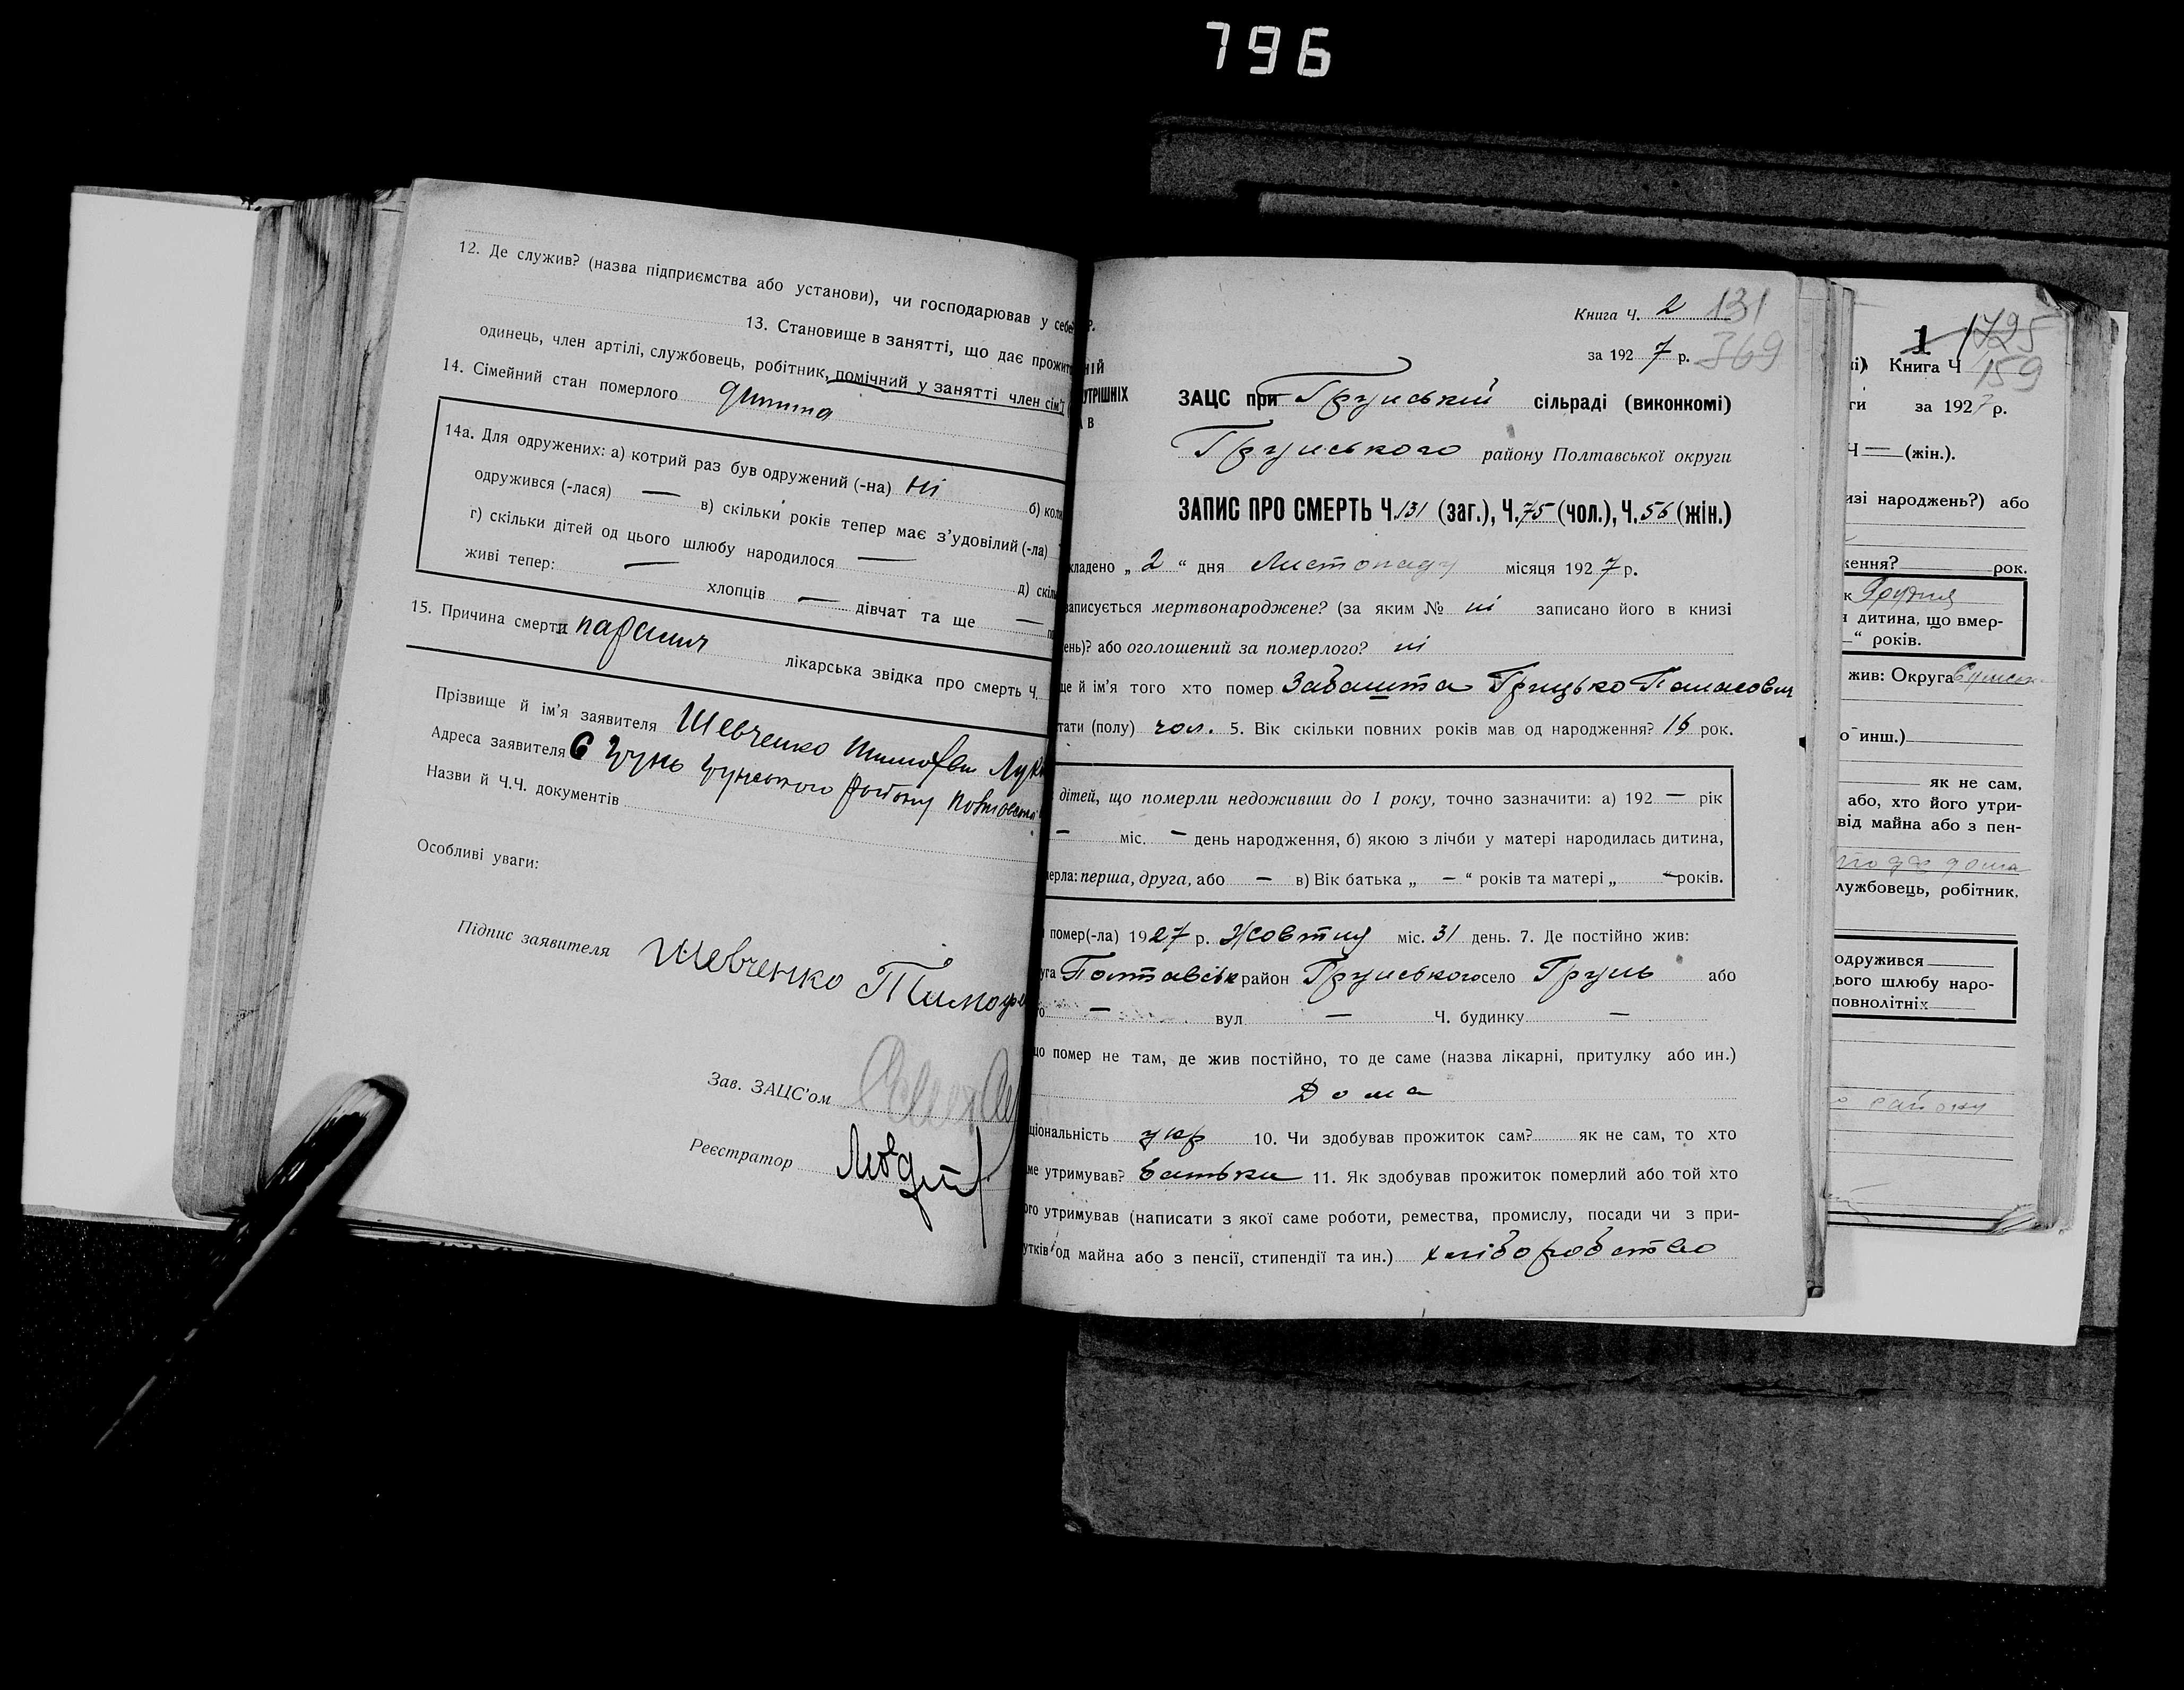 796
12. Де служив? (назва підприємства або установи), чи господарював у себе?
13. Становище в занятті, що дає прожит
одинець, член артілі, службовець, робітник, помічний у занятті член сім'ї
14. Сімейний стан померлого дитина
14а. Для одружених: а) котрий раз був одружений (-на) ні б) коли
одружився (-лася) — в) скільки років тепер має з'удовілий (-ла)
г) скільки дітей од цього шлюбу народилося — д) скіль
живі тепер: — хлопців — дівчат та ще —
15. Причина смерти параліч лікарська звідка про смерть Ч.
Прізвище й ім'я заявителя Шевченко Тимофей Лук
Адреса заявителя С Грунь Грунського району Полтавської
Назви й Ч.Ч. документів
Особливі уваги:
Підпис заявителя Шевченко Тимофе
Зав. ЗАЦС'ом
Реєстратор
НІЙ
УТРІШНІХ
В
Книга Ч. 2 131
за 1927 р. 369
ЗАЦС при Грунській сільраді (виконкомі)
Грунського району Полтавської округи
ЗАПИС ПРО СМЕРТЬ Ч. 131 (заг.), Ч. 75 (чол.), Ч. 56 (жін.)
кладено „ 2 " дня Листопаду місяця 1927 р.
записується мертвонароджене? (за яким № ні записано його в книзі
ень)? або оголошений за померлого? ні
ще й ім'я того хто помер Забашта Грицько Панасович
тати (полу) чол. 5. Вік скільки повних років мав од народження? 16 рок.
дітей, що померли недоживши до 1 року, точно зазначити: а) 192 — рік
— міс. — день народження, б) якою з лічби у матері народилась дитина,
мерла: перша, друга, або — в) Вік батька „ — " років та матері „ — " років.
помер(-ла) 1927 р. Жовтня міс. 31 день. 7. Де постійно жив:
уга Полтавськ район Грунського село Грунь або
о — вул — Ч. будинку —
що помер не там, де жив постійно, то де саме (назва лікарні, притулку або ин.)
Дома
ціональність укр 10. Чи здобував прожиток сам? як не сам, то хто
ме утримував? батьки 11. Як здобував прожиток померлий або той хто
ого утримував (написати з якої саме роботи, ремества, промислу, посади чи з при-
утків од майна або з пенсії, стипендії та ин.) хліборобство
1 1725
і) Книга Ч 159
ги за 1927 р.
Ч — (жін.).
изі народжень?) або
ження? рок.
к Грудня
я дитина, що вмер-
" років.
жив: Округа Сумськ
о инш.)
як не сам,
або, хто його утри-
від майна або з пен-
дома
лужбовець, робітник,
одружився
ього шлюбу наро-
повнолітніх
району